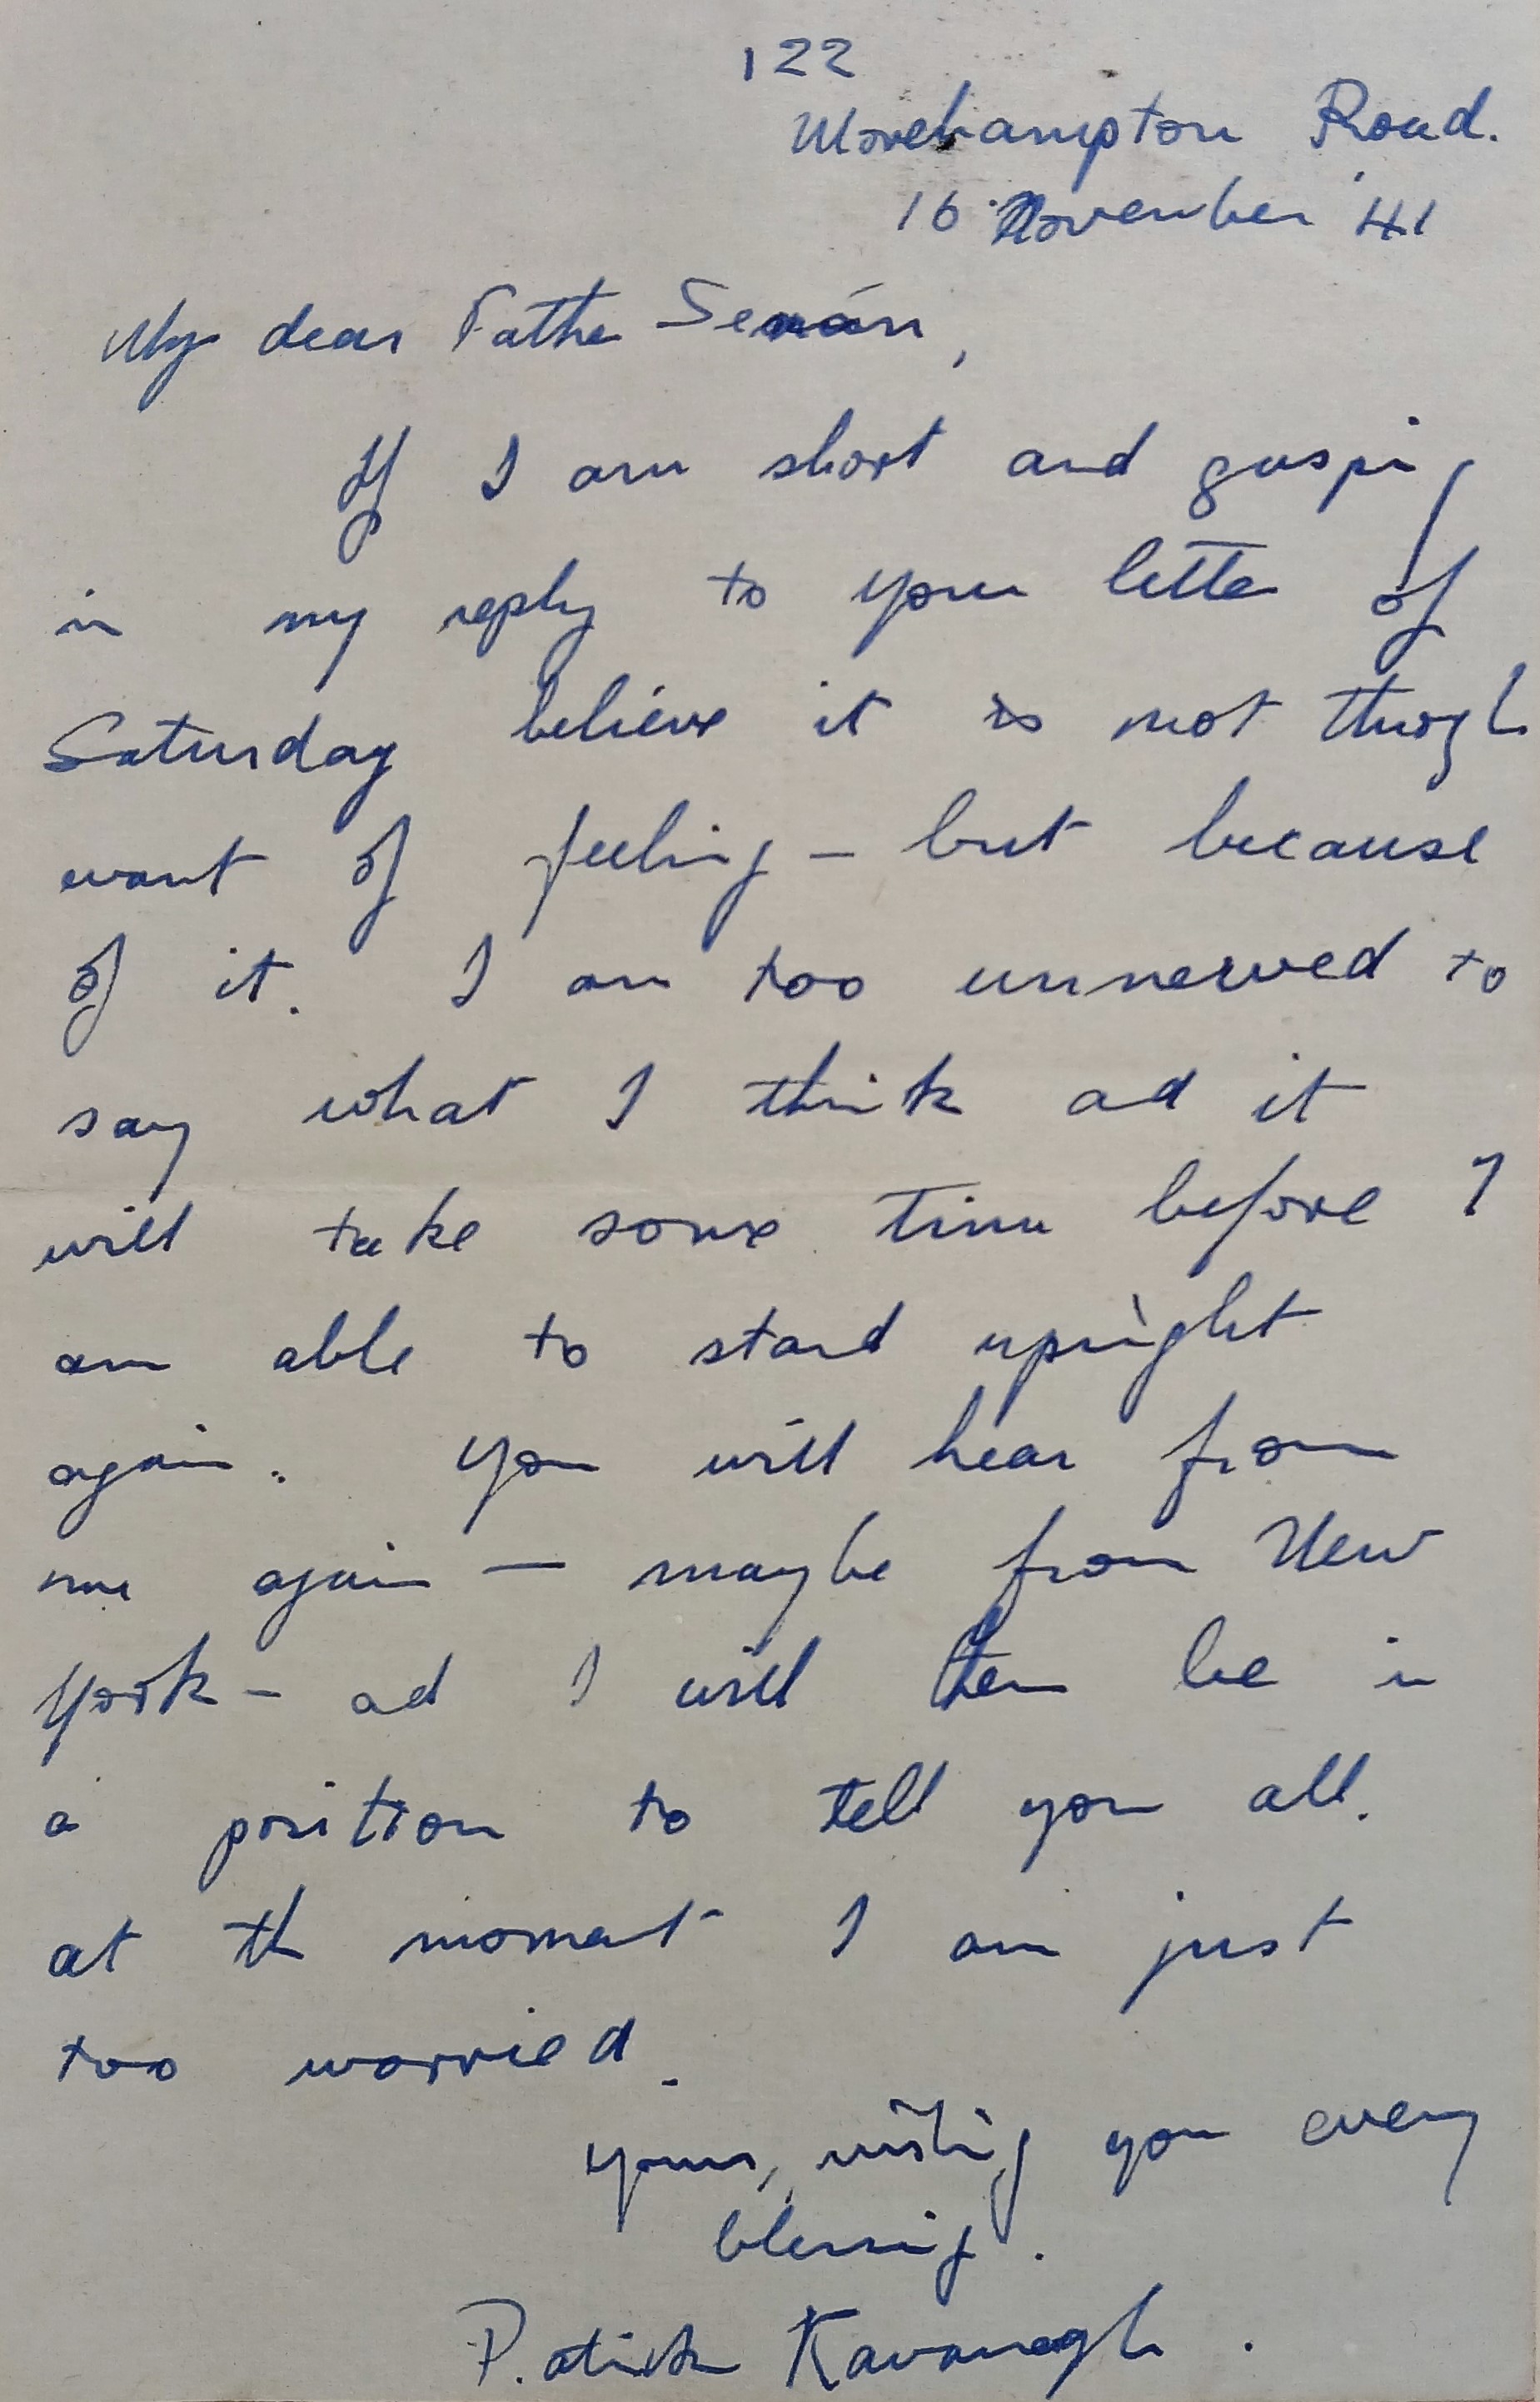 122
Morehampton Road.
16 November '41
My dear Father Senán,
If I am short and gasping
in my reply to your letter of
Saturday believe it is not through
want of feeling – but because
of it. I am too unnerved to
say what I think ad it
will take some time before I
am able to stand upright
again. You will hear from
me again — maybe from New
York – ad I will then be in
a position to tell you all.
at th moment I am just
too worried.
yours, wishing you every
blessing.
Patrick Kavanagh.